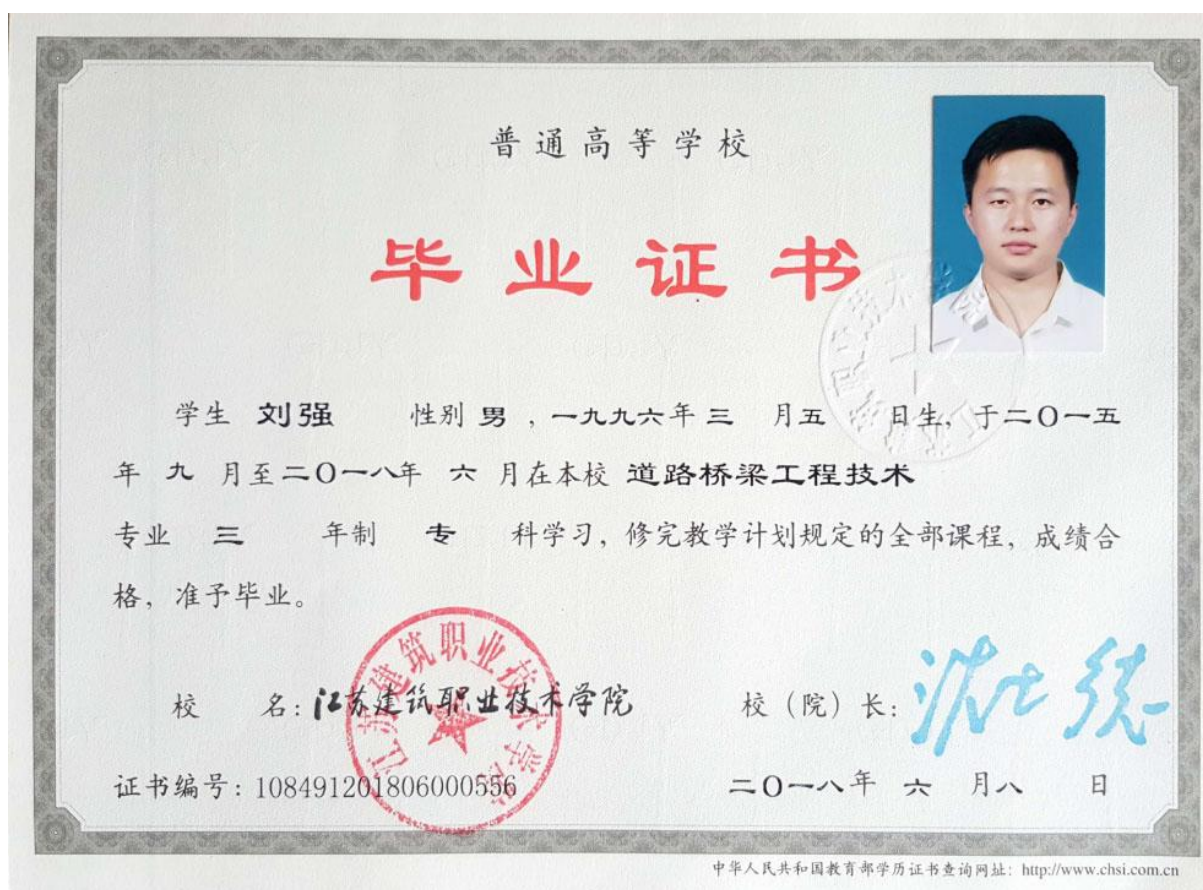 普通高等学校
毕业证书
学生 刘强 性别 男，一九九六年 三 月五 日生，于二O一五
年 九 月至二O一八年 六 月在本校 道路桥梁工程技术
专业 三 年制 专 科学习，修完教学计划规定的全部课程，成绩合
格，准予毕业。
江苏建筑职业技术学院
校 名：江苏建筑职业技术学院 校（院）长：沈士德
证书编号：108491201806000556 二O一八年 六 月八 日
中华人民共和国教育部学历证书查询网址：http://www.chsi.com.cn